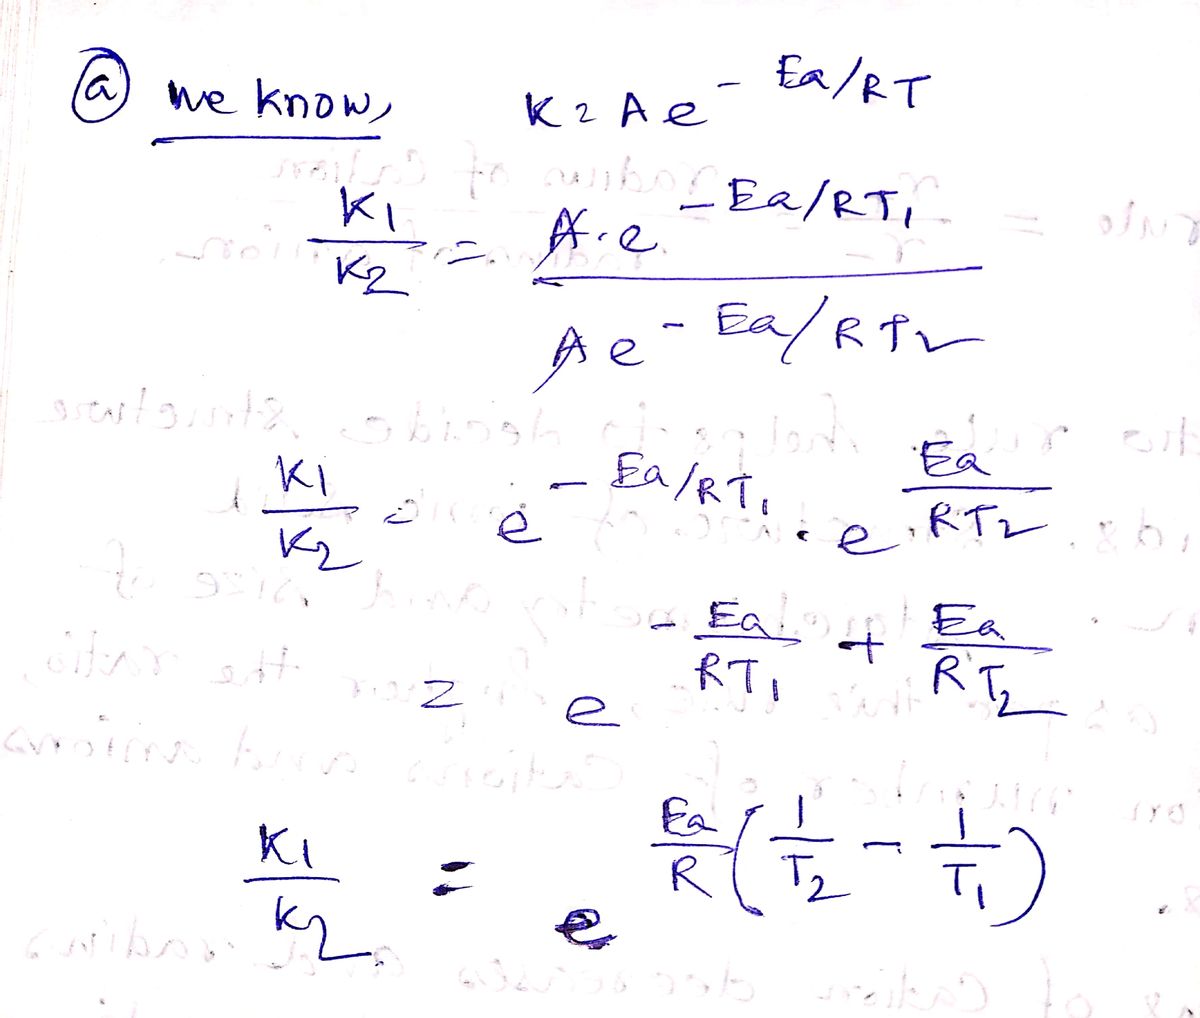 (a) we know, K = A e^- Ea/RT
K1/K2 = A.e^-Ea/RT1 / A e^- Ea/RT2
K1/K2 = e^- Ea/RT1 . e^Ea/RT2
= e^- Ea/RT1 + Ea/RT2
K1/K2 = e^Ea/R (1/T2 - 1/T1)